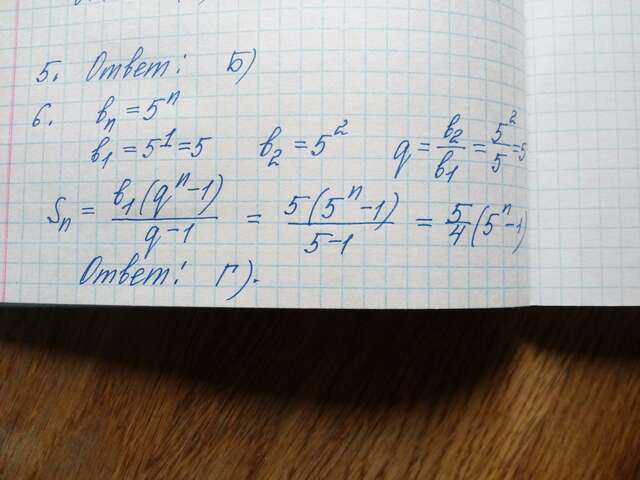 5. Ответ: Б)
6. bₙ = 5ⁿ
b₁ = 5¹ = 5 b₂ = 5² q = b₂/b₁ = 5²/5 = 5
Sₙ = b₁(qⁿ-1)/(q-1) = 5(5ⁿ-1)/(5-1) = 5/4(5ⁿ-1)
Ответ: Г).